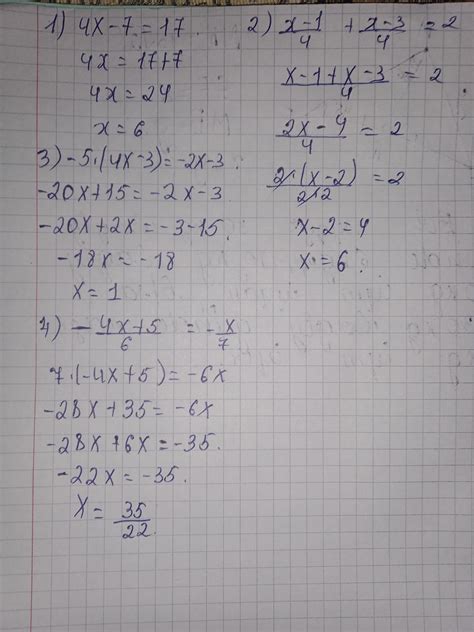 1) 4x-7=17
4x=17+7
4x=24
x=6
2) \frac{x-1}{4} + \frac{x-3}{4} = 2
\frac{x-1+x-3}{4} = 2
\frac{2x-4}{4} = 2
\frac{2·(x-2)}{2·2} = 2
x-2=4
x=6.
3) -5·(4x-3)=-2x-3.
-20x+15=-2x-3
-20x+2x=-3-15.
-18x=-18
x=1
4) -\frac{4x+5}{6} = -\frac{x}{7}
7·(-4x+5)=-6x
-28x+35=-6x
-28x+6x=-35.
-22x=-35.
x=\frac{35}{22}.